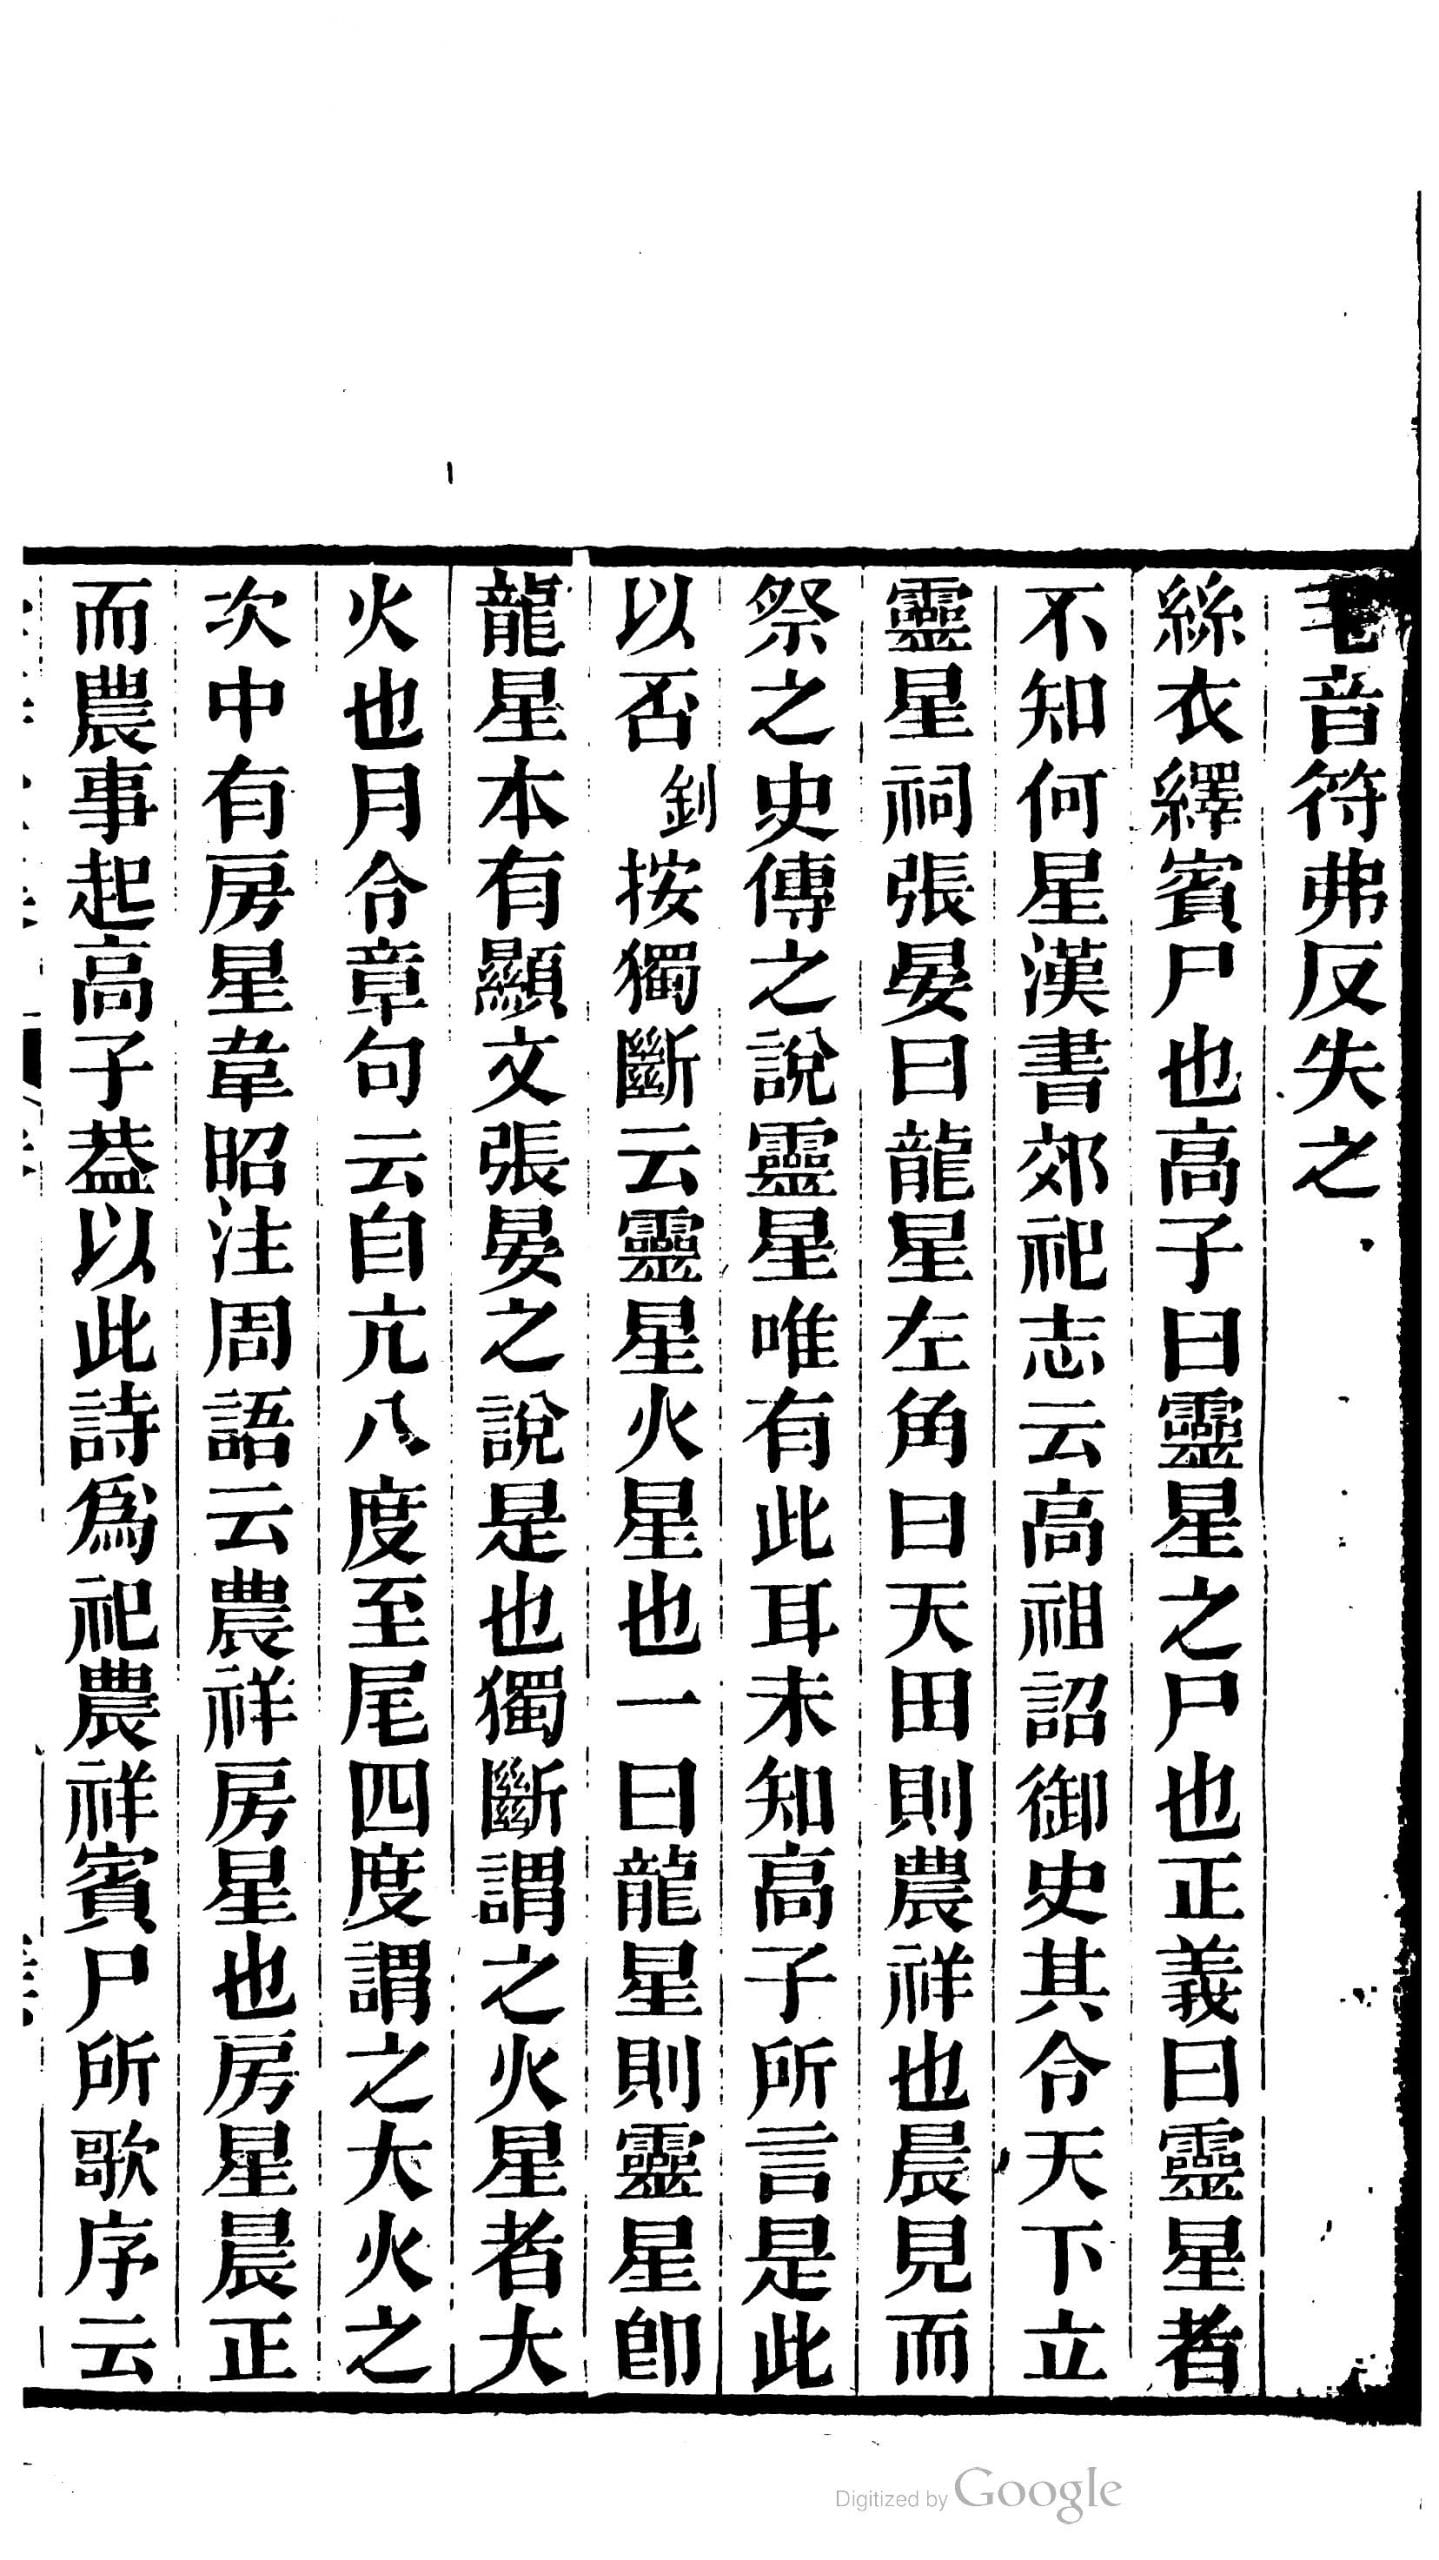 毛音符弗反失之
絲衣繹賓尸也高子曰靈星之尸也正義曰靈星者
不知何星漢書郊祀志云高祖詔御史其令天下立
靈星祠張晏曰龍星左角曰天田則農祥也晨見而
祭之史傳之說靈星唯有此耳未知高子所言是此
以否釗按獨斷云靈星火星也一曰龍星則靈星卽
龍星本有顯文張晏之說是也獨斷謂之火星者大
火也月令章句云自亢八度至尾四度謂之大火之
次中有房星韋昭注周語云農祥房星也房星晨正
而農事起高子葢以此詩爲祀農祥賓尸所歌序云
Digitized by Google